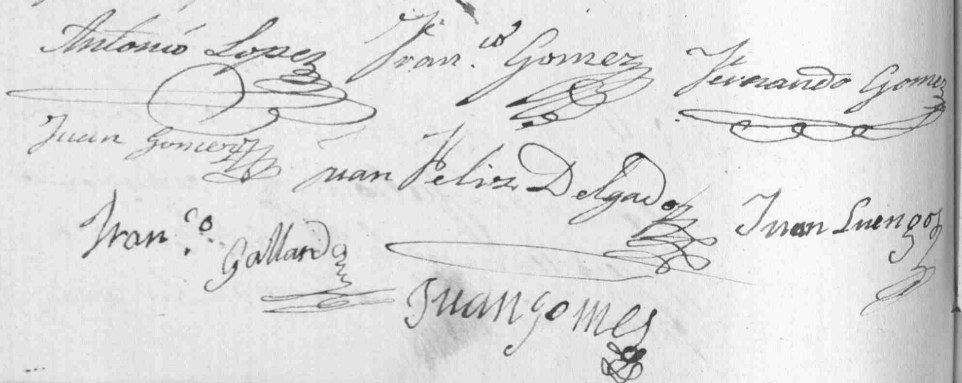 Antonio Lopez Fran.co Gomez Fernando Gomez
Juan Gomez Juan Feliz Delgado Juan Luengo
Fran.co Gallardo
Juan gomes